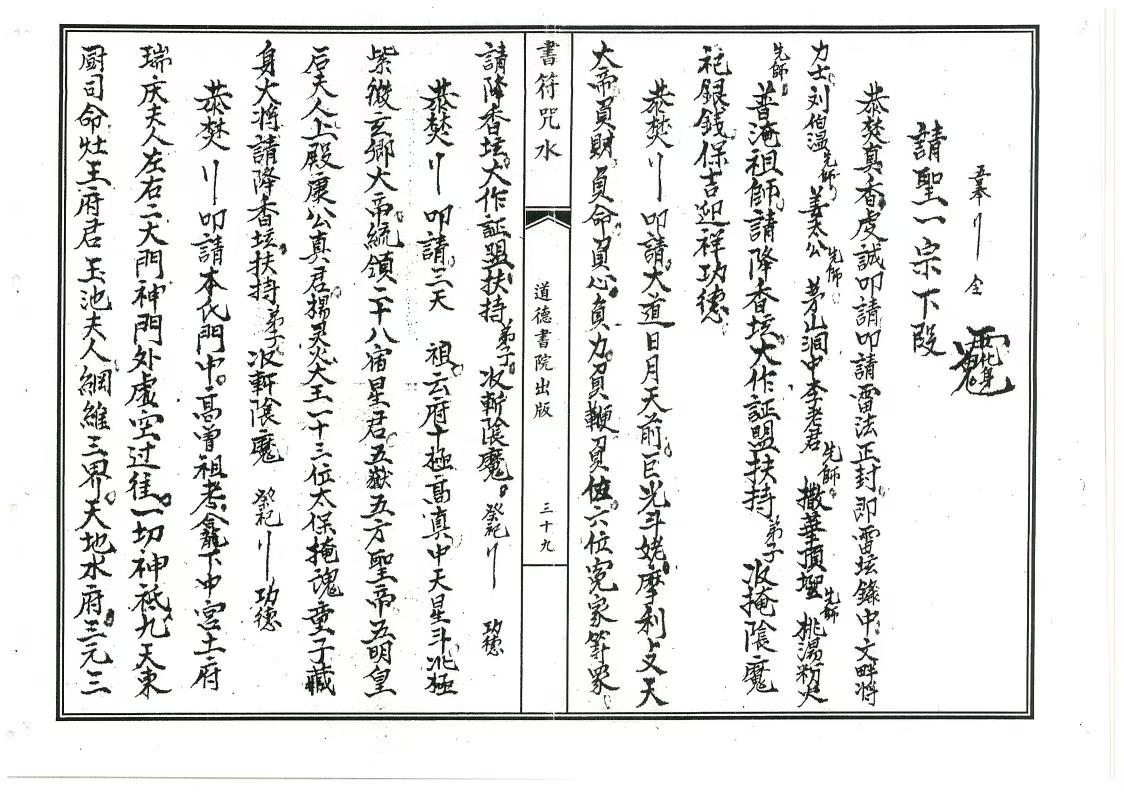 五奉〢仝
西化身
請聖一宗下段
恭焚真香虔誠叩請叩請雷法正封即雷坛錄中文畔將
力士刘伯温先師姜太公先師茅山洞中李老君先師撒華頂
先師普淹祖師請降香坛大作証盟扶持弟子汊掩陰魔
祀銀銭保吉迎祥功德
恭焚〢叩請大道日月天前巨光斗姥摩利攴天
大帝員財員命員心員力員鞭員位六位冤家等眾
書符咒水
道德書院出版
三十九
請降香坛大作証盟扶持弟子汊斬陰魔祭祀〢功德
恭焚〢叩請三天祖云府十極高真中天星斗北極
紫微玄鄉大帝統領二十八宿星君五嶽五方聖帝五明皇
后夫人上殿康公真君揚灵火大王一十三位太保掩魂童子藏
身大将請降香坛扶持弟子汊斬陰魔祭祀〢功德
恭焚〢叩請本氏門中高曾祖考龕下中宮土府
瑞庆夫人左右二大門神門外虛空过往一切神祗九天東
厨司命灶王府君玉池夫人綱維三界天地水府三元三